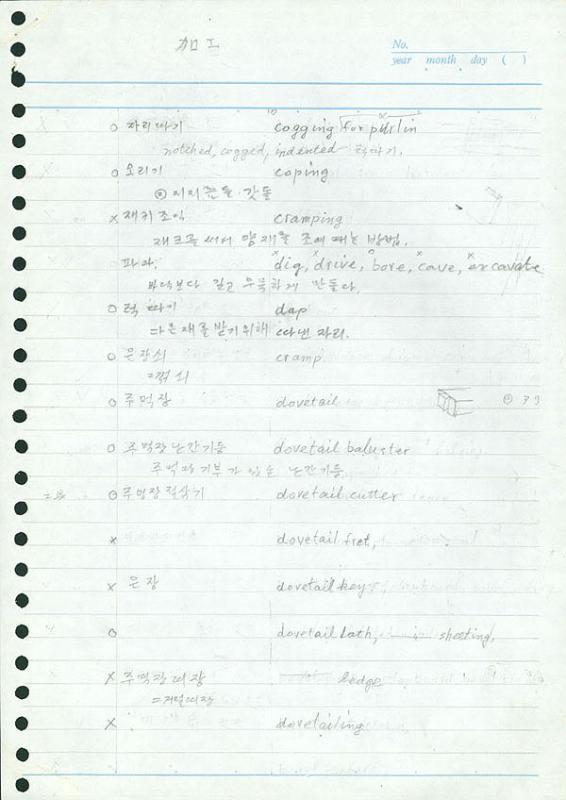 加工
No.
year month day ( )
○ 자리따기 cogging for purlin
notched, cogged, indented 턱따기.
○ 소리기 coping
× 재키 조임 cramping
재크를 써서 양재를 조여 매는 방법.
파다. dig, drive, bore, cave, excavate
바닥보다 깊고 우묵하게 만들다.
○ 턱 따기 dap
다른재를 받기위해 따낸 자리.
○ 은장쇠 cramp
=꺾쇠
○ 주먹장 dovetail
○ 주먹장난간기둥 dovetail baluster
주먹장 기부가 있는 난간기둥
○ 주먹장절삭기 dovetail cutter
× dovetail fret,
× 은장 dovetail key
○ dovetail lath, sheeting,
× 주먹장띠장 ledge
× dovetailing